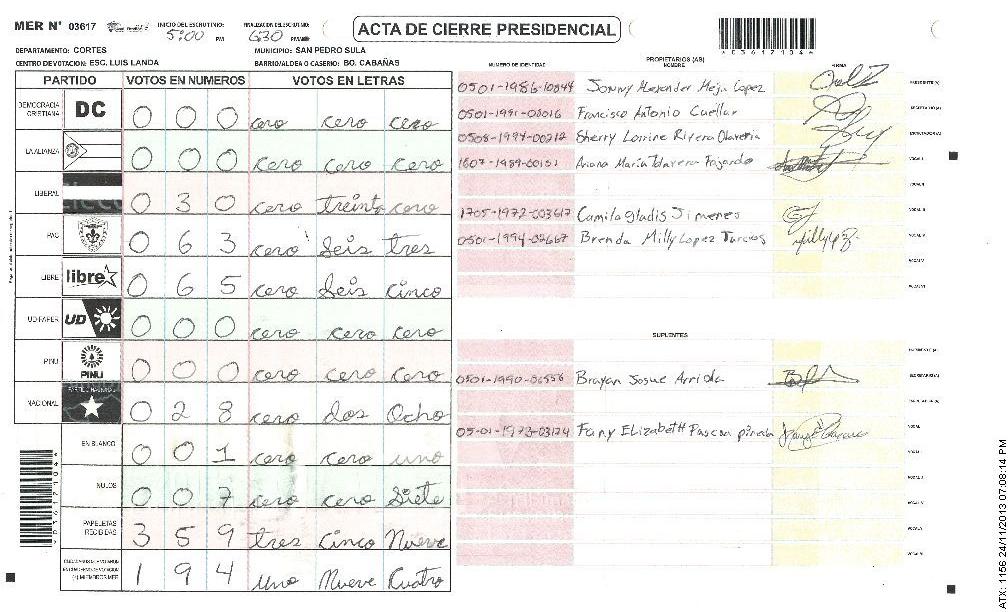 MER N° 03617 INICIO DEL ESCRUTINIO: 5:00 PM FINALIZACION DEL ESCRUTINIO: 630 PM ACTA DE CIERRE PRESIDENCIAL *03617104*
DEPARTAMENTO: CORTES MUNICIPIO: SAN PEDRO SULA
CENTRO DE VOTACION: ESC. LUIS LANDA BARRIO/ALDEA O CASERIO: BO. CABAÑAS
PARTIDO VOTOS EN NUMEROS VOTOS EN LETRAS
DEMOCRACIA CRISTIANA DC 0 0 0 cero cero cero
LA ALIANZA 0 0 0 cero cero cero
LIBERAL 0 3 0 cero treinta cero
PAC 0 6 3 cero Seis tres
LIBRE libre 0 6 5 cero Seis cinco
UD-FAPER UD 0 0 0 cero cero cero
PINU PINU 0 0 0 cero cero cero
NACIONAL 0 2 8 cero dos Ocho
EN BLANCO 0 0 1 cero cero uno
NULOS 0 0 7 cero cero Siete
PAPELETAS RECIBIDAS 3 5 9 tres Cinco Nueve
1 9 4 Uno Nueve Cuatro
NUMERO DE IDENTIDAD PROPIETARIOS (AS) NOMBRE FIRMA
0501-1986-10844 Jonny Alexander Mejia Lopez PRESIDENTE(A)
0501-1991-00016 Francisco Antonio Cuellar SECRETARIO(A)
0508-1994-00212 Sherry Lorrine Rivera ESCRUTADOR(A)
1607-1989-00151 Ariana Maria Talavera Fajardo VOCAL I
VOCAL II
1705-1972-003617 Camila gladis Jimenes VOCAL III
0501-1994-02667 Brenda Milly Lopez Turcios VOCAL IV
VOCAL V
VOCAL VI
SUPLENTES
0501-1990-06556 Brayan Josue Arriola SECRETARIO(A)
05-01-1973-03174 Fany ELIZABETH Pascua pineda VOCAL
ATX: 1156 24/11/2013 07:08:14 PM